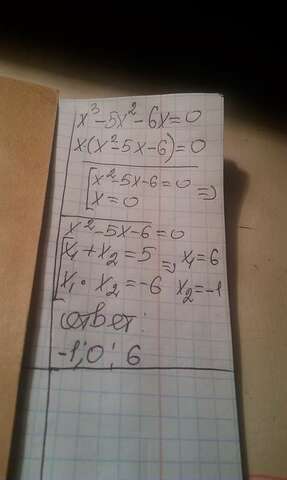 x³-5x²-6x=0
x(x²-5x-6)=0
[x²-5x-6=0 =>
x=0
x²-5x-6=0
x₁+x₂=5 => x₁=6
x₁·x₂=-6 x₂=-1
ответ:
-1;0;6